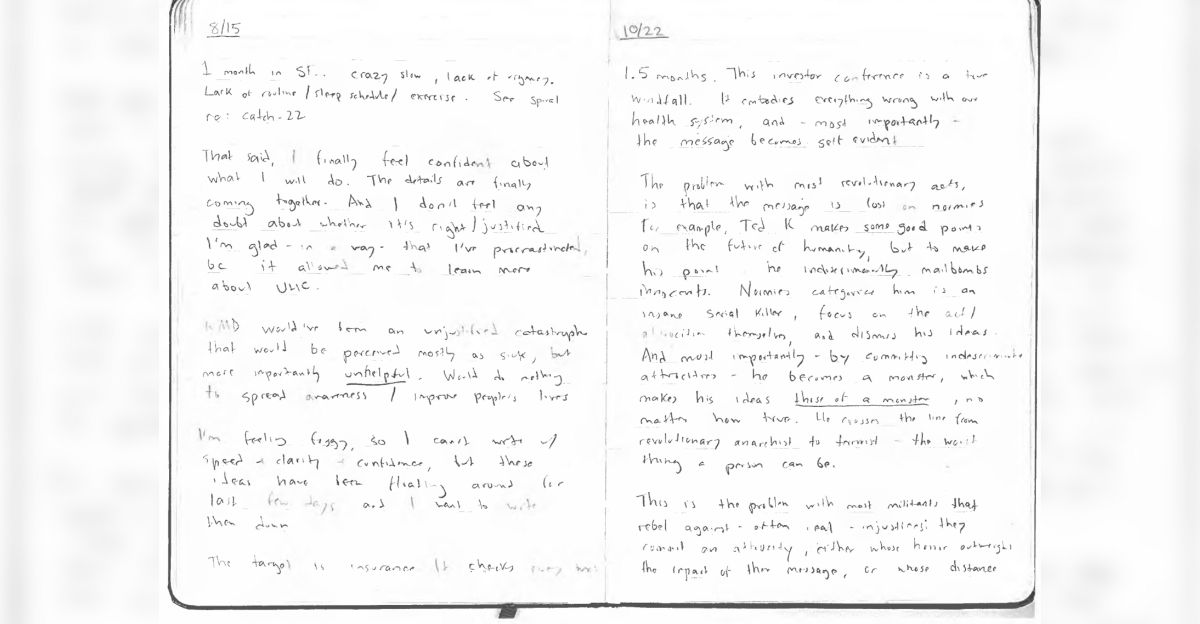 8/15
1 month in SF.. crazy slow, lack of urgency.
Lack of routine / sleep schedule / exercise. See spiral
re: catch-22
That said, I finally feel confident about
what I will do. The details are finally
coming together. And I don't feel any
doubt about whether it's right / justified.
I'm glad - in a way - that I've procrastinated,
bc it allowed me to learn more
about UHC.
would've been an unjustified catastrophe
that would be perceived mostly as sick, but
more importantly unhelpful. Would do nothing
to spread awareness / improve people's lives
I'm feeling foggy, so I can't write w/
speed + clarity + confidence, but these
ideas have been floating around for
last few days and I want to write
them down
The target is insurance It checks every box
10/22
1.5 months. This investor conference is a true
windfall. It embodies everything wrong with our
health system, and - most importantly -
the message becomes self evident
The problem with most revolutionary acts,
is that the message is lost on normies
For example, Ted K makes some good points
on the future of humanity, but to make
his point he indiscriminantly mailbombs
innocents. Normies categorize him is an
insane serial killer, focus on the act/
atrocities themselves, and dismiss his ideas.
And most importantly - by committing indescriminate
attrocities - he becomes a monster, which
makes his ideas those of a monster, no
matter how true. He crosses the line from
revolutionary anarchist to terrorist - the worst
thing a person can be.
This is the problem with most militants that
rebel against - often real - injustices: they
commit an attrocity, either whose horror outweighs
the impact of their message, or whose distance